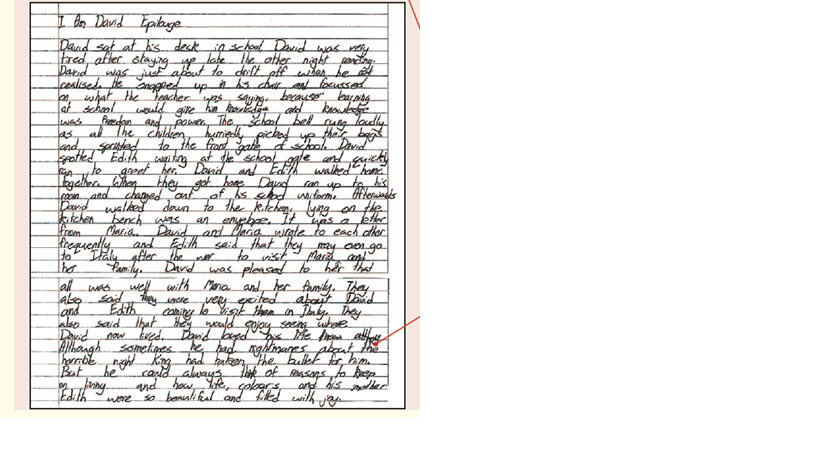 I Am David Epilouge
David sat at his desk in school. David was very
tired after staying up late the other night reading.
David was just about to drift off when he
realised. He snapped up in his chair and focussed
on what the teacher was saying, because learning
at school would give him knowledge and knowledge
was freedom and power. The school bell rung loudly
as all the children hurriedly picked up their bags
and sprinted to the front gate of school. David
spotted Edith waiting at the school gate and quickly
ran to greet her. David and Edith walked home
together. When they got home David ran up to his
room and changed out of his school uniform. Afterwards
David walked down to the kitchen, lying on the
kitchen bench was an envelope. It was a letter
from Maria. David and Maria wrote to each other
frequently and Edith said that they may even go
to Italy after the war to visit Maria and
her family. David was pleased to hear that
all was well with Maria and her family. They
also said they were very excited about David
and Edith coming to visit them in Italy. They
also said that they would enjoy seeing where
David now lived. David loved his life now
Although sometimes he had nightmares about the
horrible night King had taken the bullet for him.
But he could always think of reasons to keep
on living and how life, colours, and his mother
Edith were so beautiful and filled with joy.